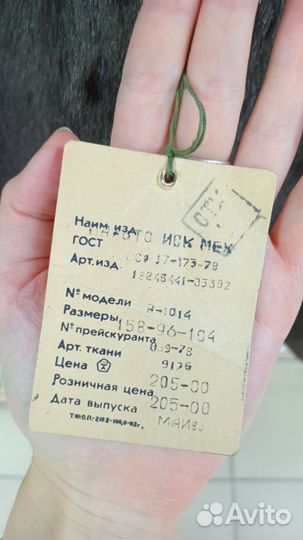 Наим.изд. ПАЛЬТО ИСК МЕХ
ГОСТ ОСТ 17-173-78
Арт.изд. 18245441-03392
№ модели В-1014
Размеры 158-96-104
№ прейскуранта 089-78
Арт. ткани 9176
Цена
Розничная цена 205-00
Дата выпуска 205-00
МАЙ83
Avito